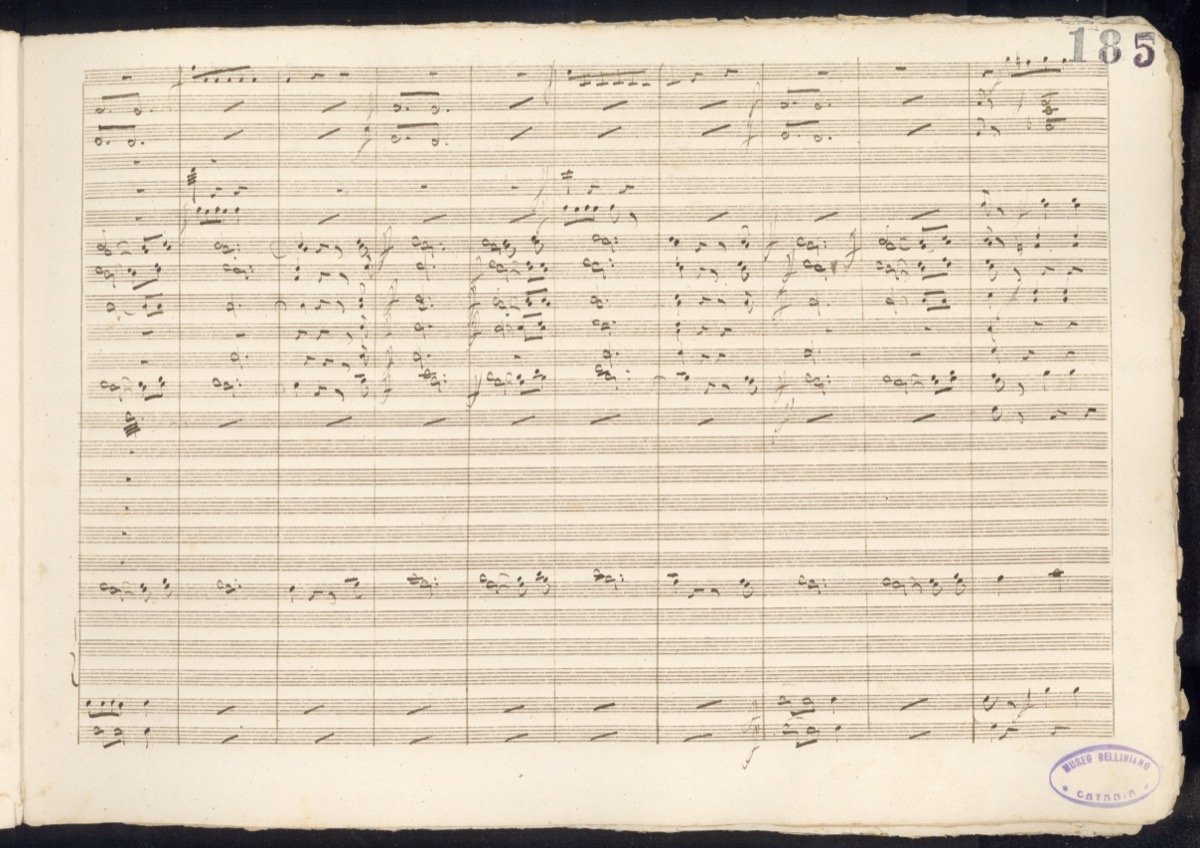 185
MUSEO BELLINIANO
CATANIA